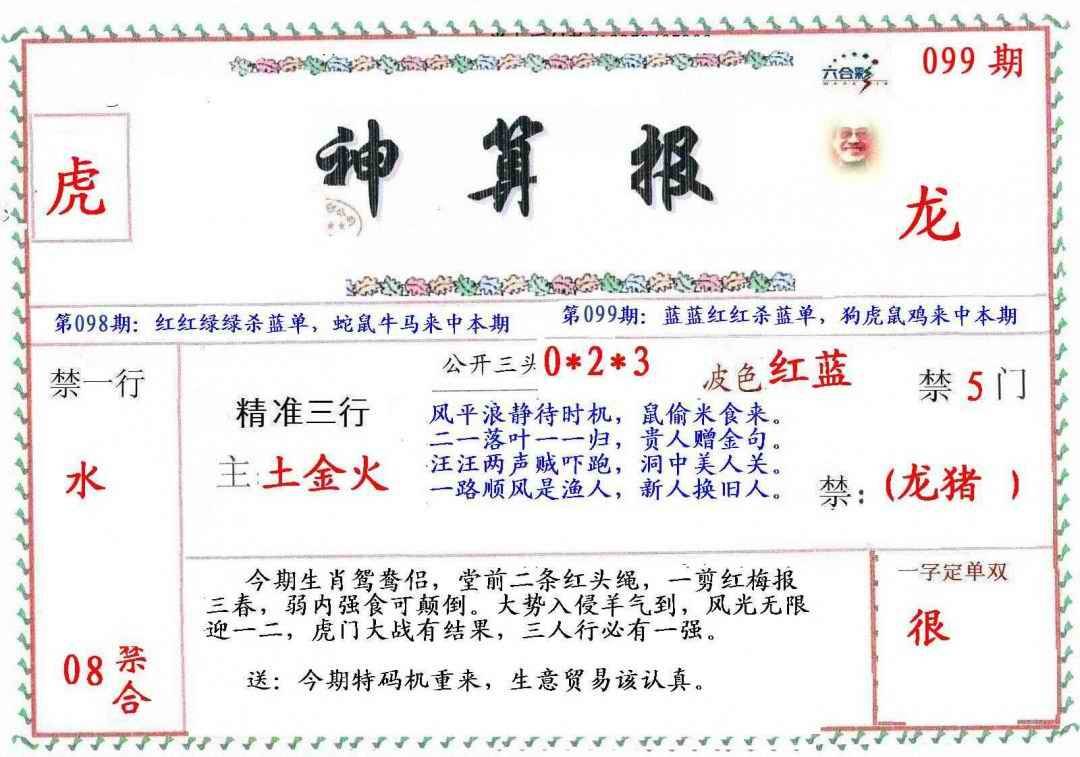 六合彩
099 期
虎
神算报
龙
第098期：红红绿绿杀蓝单，蛇鼠牛马来中本期
第099期：蓝蓝红红杀蓝单，狗虎鼠鸡来中本期
禁一行
水
08
禁合
精准三行
主:土金火
公开三头0*2*3
波色红蓝
风平浪静待时机，鼠偷米食来。
二一落叶一一归，贵人赠金句。
汪汪两声贼吓跑，洞中美人关。
一路顺风是渔人，新人换旧人。
禁5门
禁：(龙猪 )
今期生肖鸳鸯侣，堂前二条红头绳，一剪红梅报
三春，弱内强食可颠倒。大势入侵羊气到，风光无限
迎一二，虎门大战有结果，三人行必有一强。
送：今期特码机重来，生意贸易该认真。
一字定单双
很